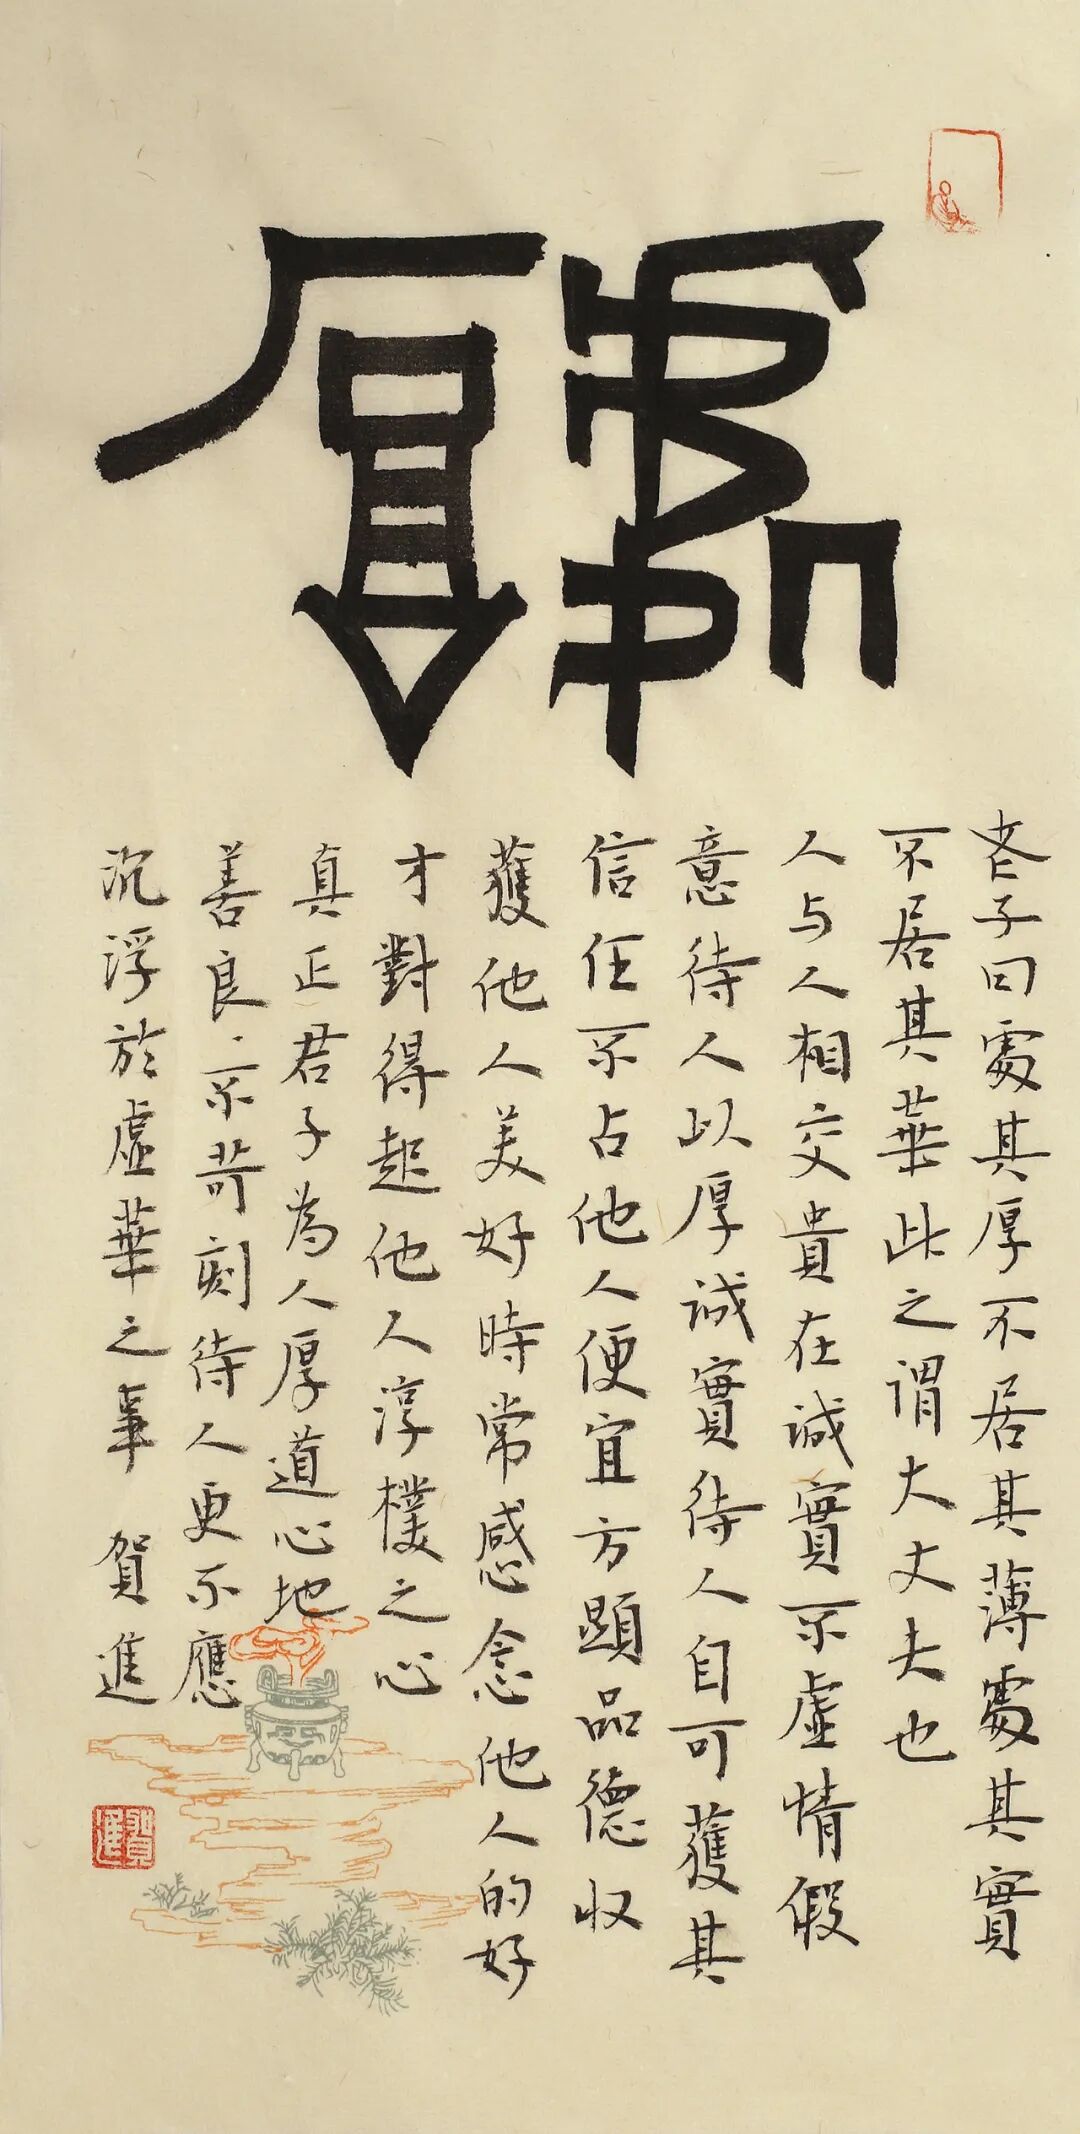 處厚
老子曰處其厚不居其薄處其實
不居其華此之謂大丈夫也
人与人相交貴在誠實不虛情假
意待人以厚誠實待人自可獲其
信任不占他人便宜方顯品德收
獲他人美好時常感念他人的好
才對得起他人淳樸之心
真正君子為人厚道心地
善良不苛刻待人更不應
沉浮於虛華之事 賀進
賀進